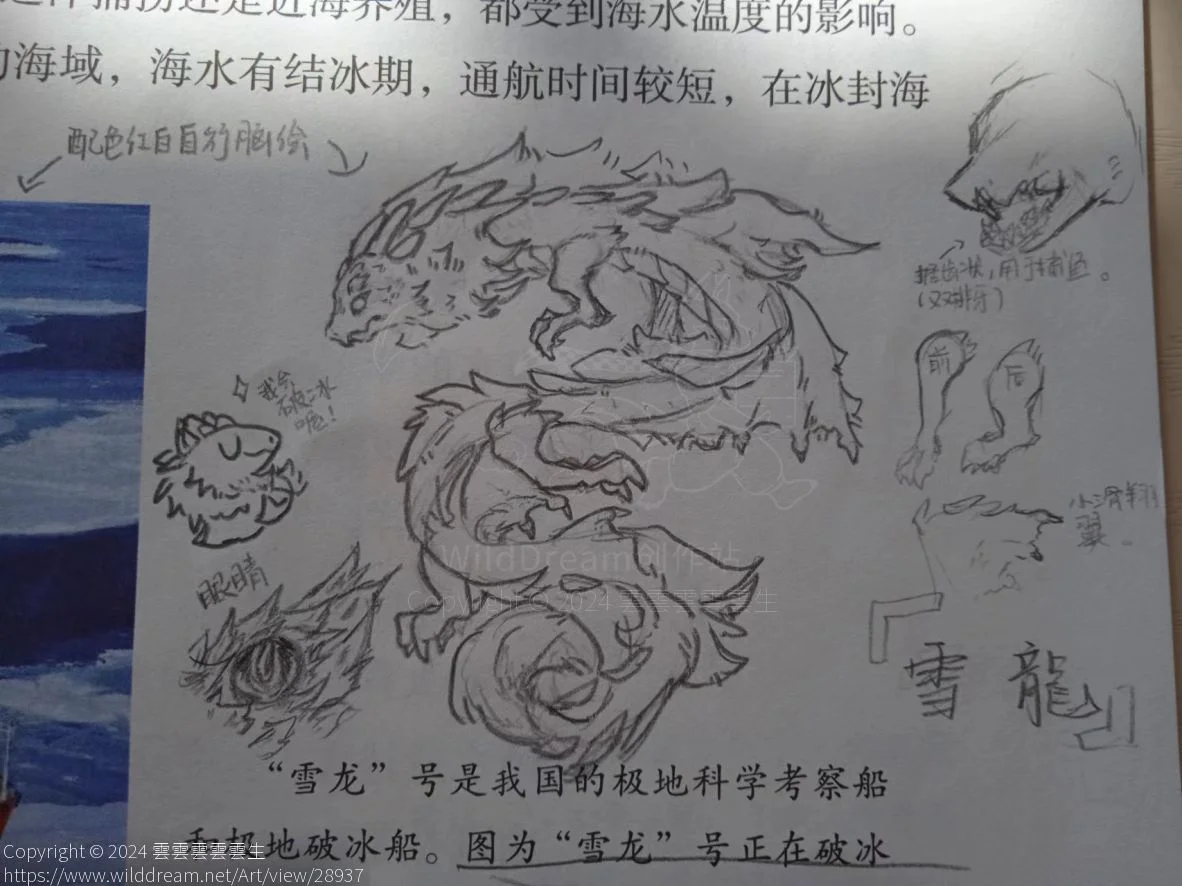 捕捞还是近海养殖，都受到海水温度的影响。
的海域，海水有结冰期，通航时间较短，在冰封海
配色红白自行脑绘
锯齿状，用于捕鱼。
（双排牙）
前
后
我会
破冰
喔！
小滑翔
翼。
眼睛
WildDream创作站
Copyright © 2024 雲雲雲雲雲生
『雪龍』
“雪龙”号是我国的极地科学考察船
和极地破冰船。图为“雪龙”号正在破冰
Copyright © 2024 雲雲雲雲雲生
https://www.wilddream.net/Art/view/28937